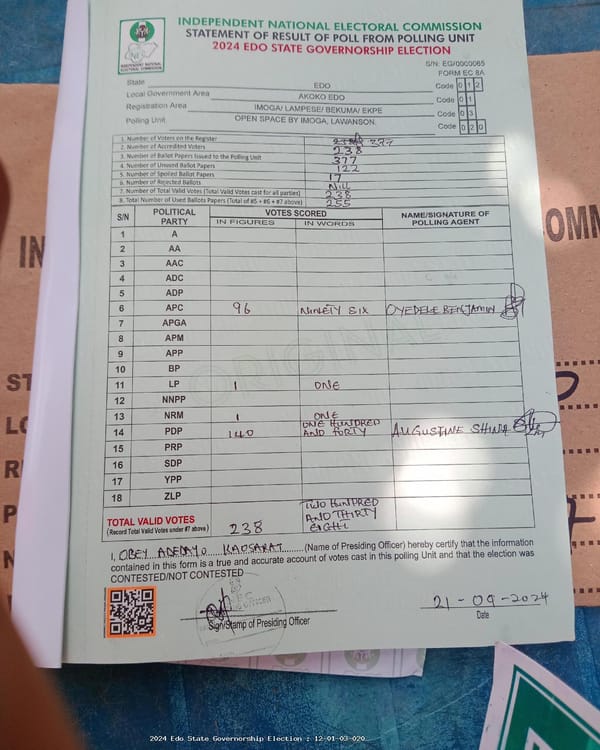 INDEPENDENT NATIONAL ELECTORAL COMMISSION
STATEMENT OF RESULT OF POLL FROM POLLING UNIT
2024 EDO STATE GOVERNORSHIP ELECTION
S/N: EG/0000065
FORM EC 8A
State EDO Code 0 1 2
Local Government Area AKOKO EDO Code 0 1
Registration Area IMOGA/ LAMPESE/ BEKUMA/ EKPE Code 0 3
Polling Unit OPEN SPACE BY IMOGA, LAWANSON. Code 0 2 0
1. Number of Voters on the Register 377
2. Number of Accredited Voters 238
3. Number of Ballot Papers Issued to the Polling Unit 377
4. Number of Unused Ballot Papers 122
5. Number of Spoiled Ballot Papers 17
6. Number of Rejected Ballots Nill
7. Number of Total Valid Votes (Total Valid Votes cast for all parties) 238
8. Total Number of Used Ballots Papers (Total of #5 + #6 + #7 above) 255
S/N POLITICAL PARTY VOTES SCORED NAME/SIGNATURE OF POLLING AGENT
IN FIGURES IN WORDS
1 A
2 AA
3 AAC
4 ADC
5 ADP
6 APC 96 NINETY SIX OYEDELE BENJAMIN
7 APGA
8 APM
9 APP
10 BP
11 LP 1 ONE
12 NNPP
13 NRM 1 ONE
14 PDP 140 ONE HUNDRED AND FORTY AUGUSTINE
15 PRP
16 SDP
17 YPP
18 ZLP
ORIGINAL
TOTAL VALID VOTES 238 TWO HUNDRED AND THIRTY EIGHT
(Record Total Valid Votes under #7 above)
I, OBEY ADEBAYO KAOSARAT (Name of Presiding Officer) hereby certify that the information
contained in this form is a true and accurate account of votes cast in this polling Unit and that the election was
CONTESTED/NOT CONTESTED
Sign/Stamp of Presiding Officer
21-09-2024
Date
2024 Edo State Governorship Election : 12-01-03-020